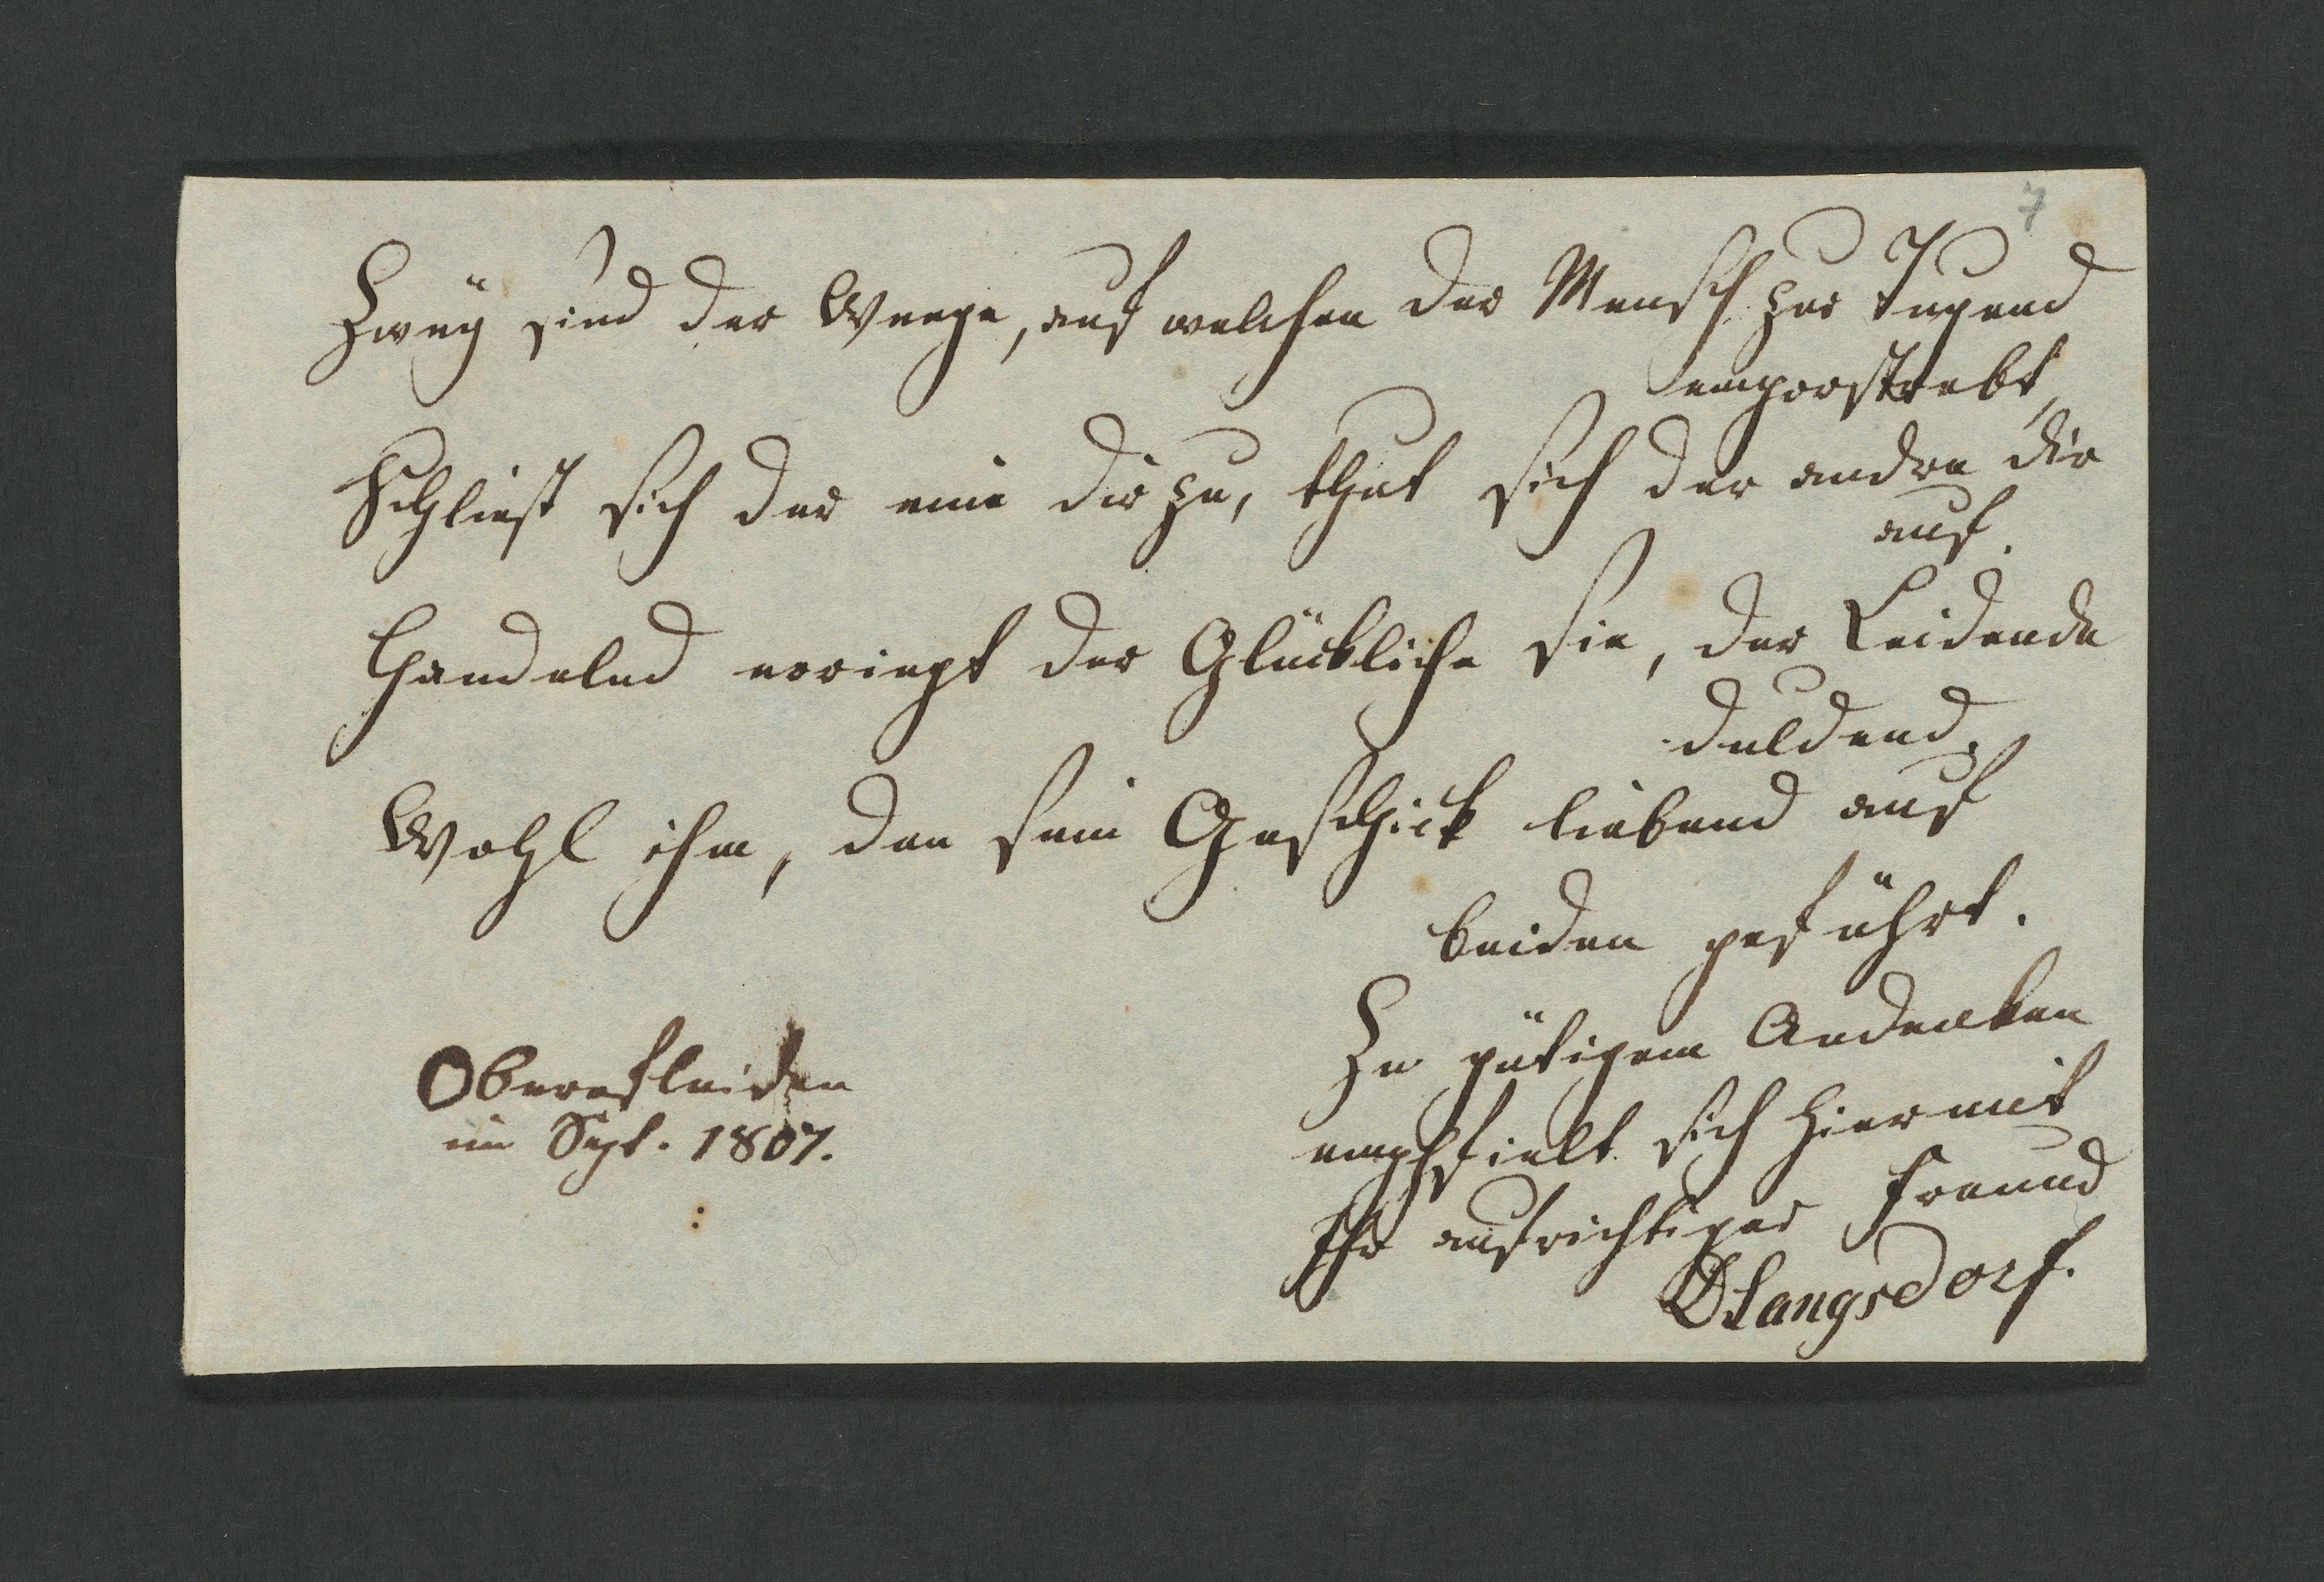 7
Zweÿ sind der Weege, auf welchen der Mensch zur Tugend
emporstrebt,
Schliest sich der eine dir zu, thut sich der andre dir
auf.
Handelnd erringt der Glückliche sie, der Leidende
duldend.
Wohl ihm, den sein Geschick liebend auf
beiden geführt.
Zu gütigem Andenken
empfielt sich hiermit
Ihr aufrichtiger Freund
DLangsdorf.
Oberofleiden
im Sept. 1807.